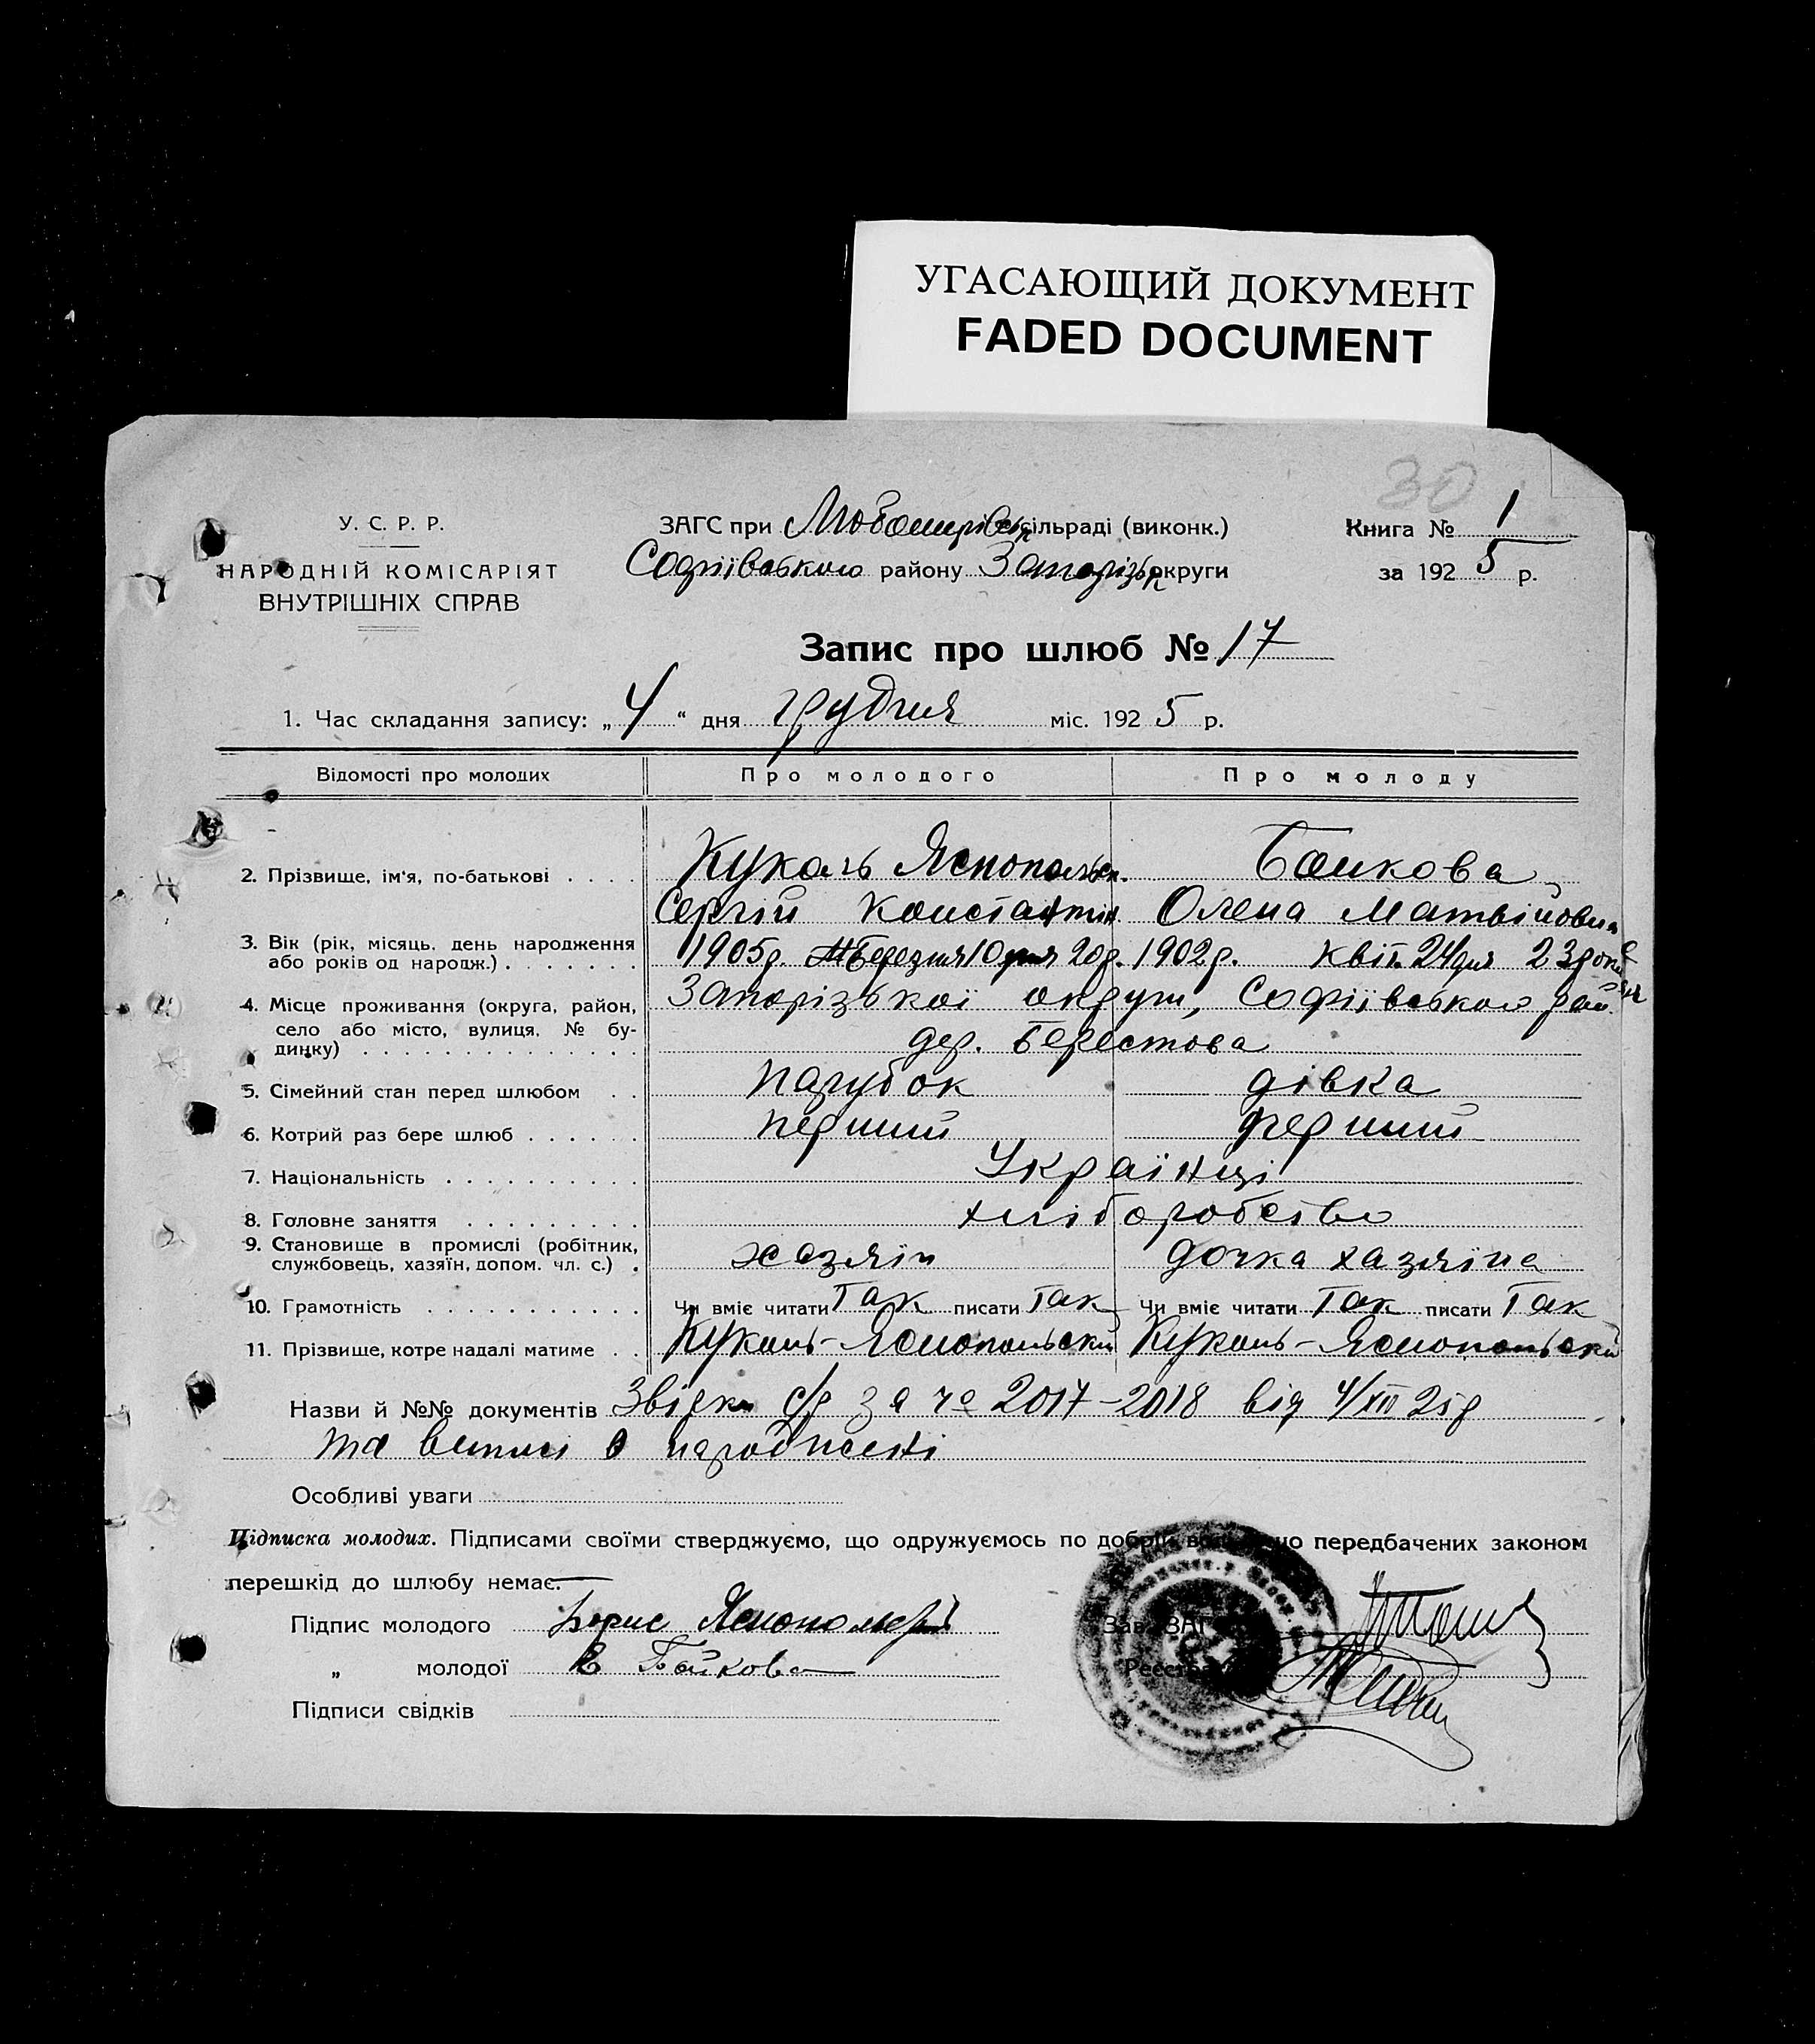 УГАСАЮЩИЙ ДОКУМЕНТ
FADED DOCUMENT
30
У. С. Р. Р.
НАРОДНІЙ КОМІСАРІЯТ
ВНУТРІШНІХ СПРАВ
ЗАГС при Любомирівськ сільраді (виконк.)
Софіївського району Запорізьк округи
Книга № 1
за 1925 р.
Запис про шлюб № 17
1. Час складання запису: „4“ дня грудня міс. 1925 р.
Відомості про молодих Про молодого Про молоду
2. Прізвище, ім'я, по-батькові . . . . Кукаль Яснопольск. Байкова
Сергій Константин Олена Матвійовн
3. Вік (рік, місяць, день народження або років од народж.) . . . . . . . 1905р. Березня 10 дня 20р. 1902р. Квіт. 24 дня 23 роки
4. Місце проживання (округа, район, село або місто, вулиця, № будинку) . . . . . . . . . . . . . . Запорізької округи, Софіївського рай.
дер. Берестова
5. Сімейний стан перед шлюбом . . парубок дівка
6. Котрий раз бере шлюб . . . . . . перший перший
7. Національність . . . . . . . . . . Українці
8. Головне заняття . . . . . . . . . хліборобство
9. Становище в промислі (робітник, службовець, хазяїн, допом. чл. с.) . хазяїн дочка хазяїна
10. Грамотність . . . . . . . . . . . Чи вміє читати Так писати Так Чи вміє читати Так писати Так
11. Прізвище, котре надалі матиме . . Кукаль-Яснопольский Кукаль-Яснопольски
Назви й №№ документів Звідки с/р за № 2017-2018 від 4/XII 25р
та виписі о народженні
Особливі уваги
Підписка молодих. Підписами своїми стверджуємо, що одружуємось по добрій передбачених законом
перешкід до шлюбу немає.
Підпис молодого Борис
„ молодої Е Байкова
Підписи свідків
Зав. ЗАГ
Реєстра